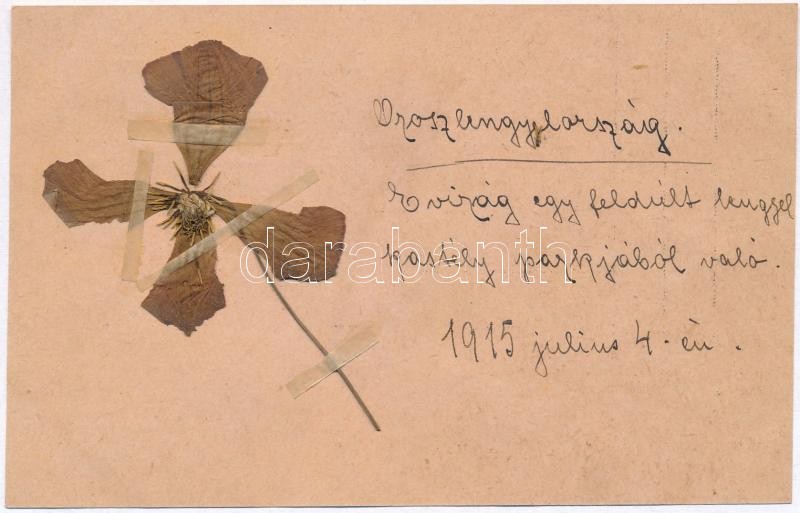 Oroszlengyelország.
E virág egy feldúlt lengyel
kastély parkjából való.
darabanth
1915 julius 4-én.